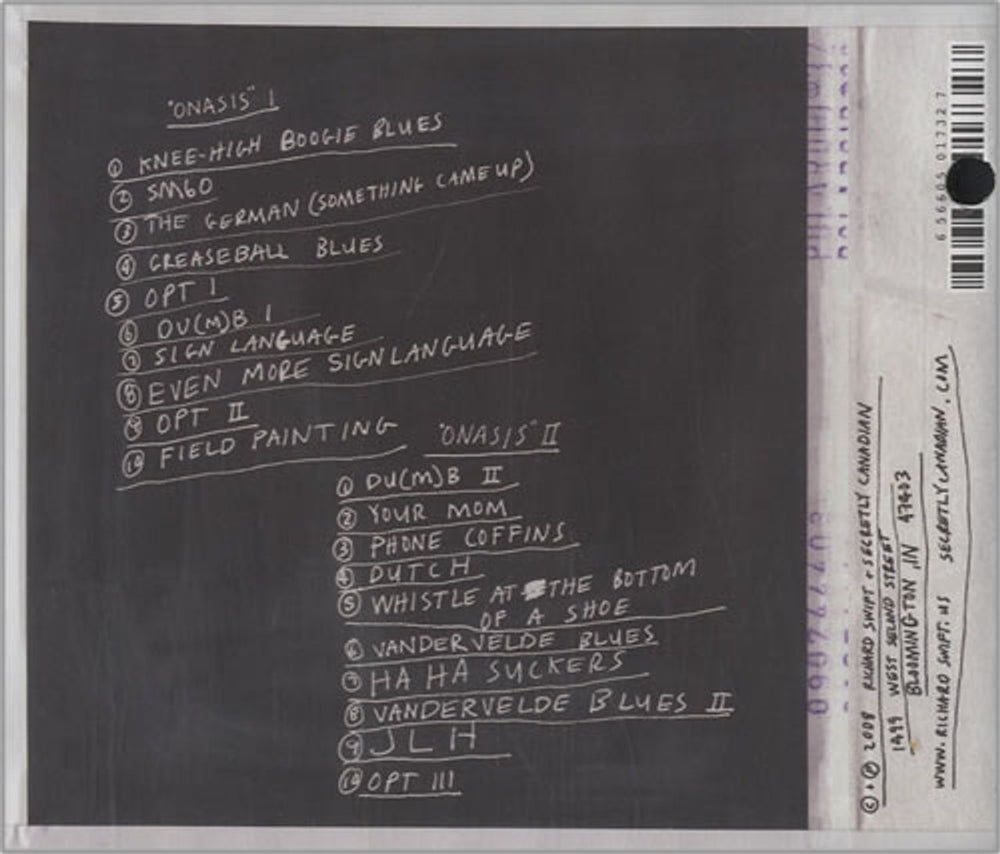 "ONASIS" I
① KNEE-HIGH BOOGIE BLUES
② SM60
③ THE GERMAN (SOMETHING CAME UP)
④ GREASEBALL BLUES
⑤ OPT I
⑥ DU(M)B I
⑦ SIGN LANGUAGE
⑧ EVEN MORE SIGN LANGUAGE
⑨ OPT II
⑩ FIELD PAINTING
"ONASIS" II
① DU(M)B II
② YOUR MOM
③ PHONE COFFINS
④ DUTCH
⑤ WHISTLE AT THE BOTTOM
OF A SHOE
⑥ VANDERVELDE BLUES
⑦ HA HA SUCKERS
⑧ VANDERVELDE BLUES II
⑨ JLH
⑩ OPT III
© + ℗ 2008 RICHARD SWIFT + SECRETLY CANADIAN
1499 WEST SECOND STREET
BLOOMINGTON, IN 47403
WWW.RICHARDSWIFT.US SECRETLYCANADIAN.COM
6 56605 01732 7